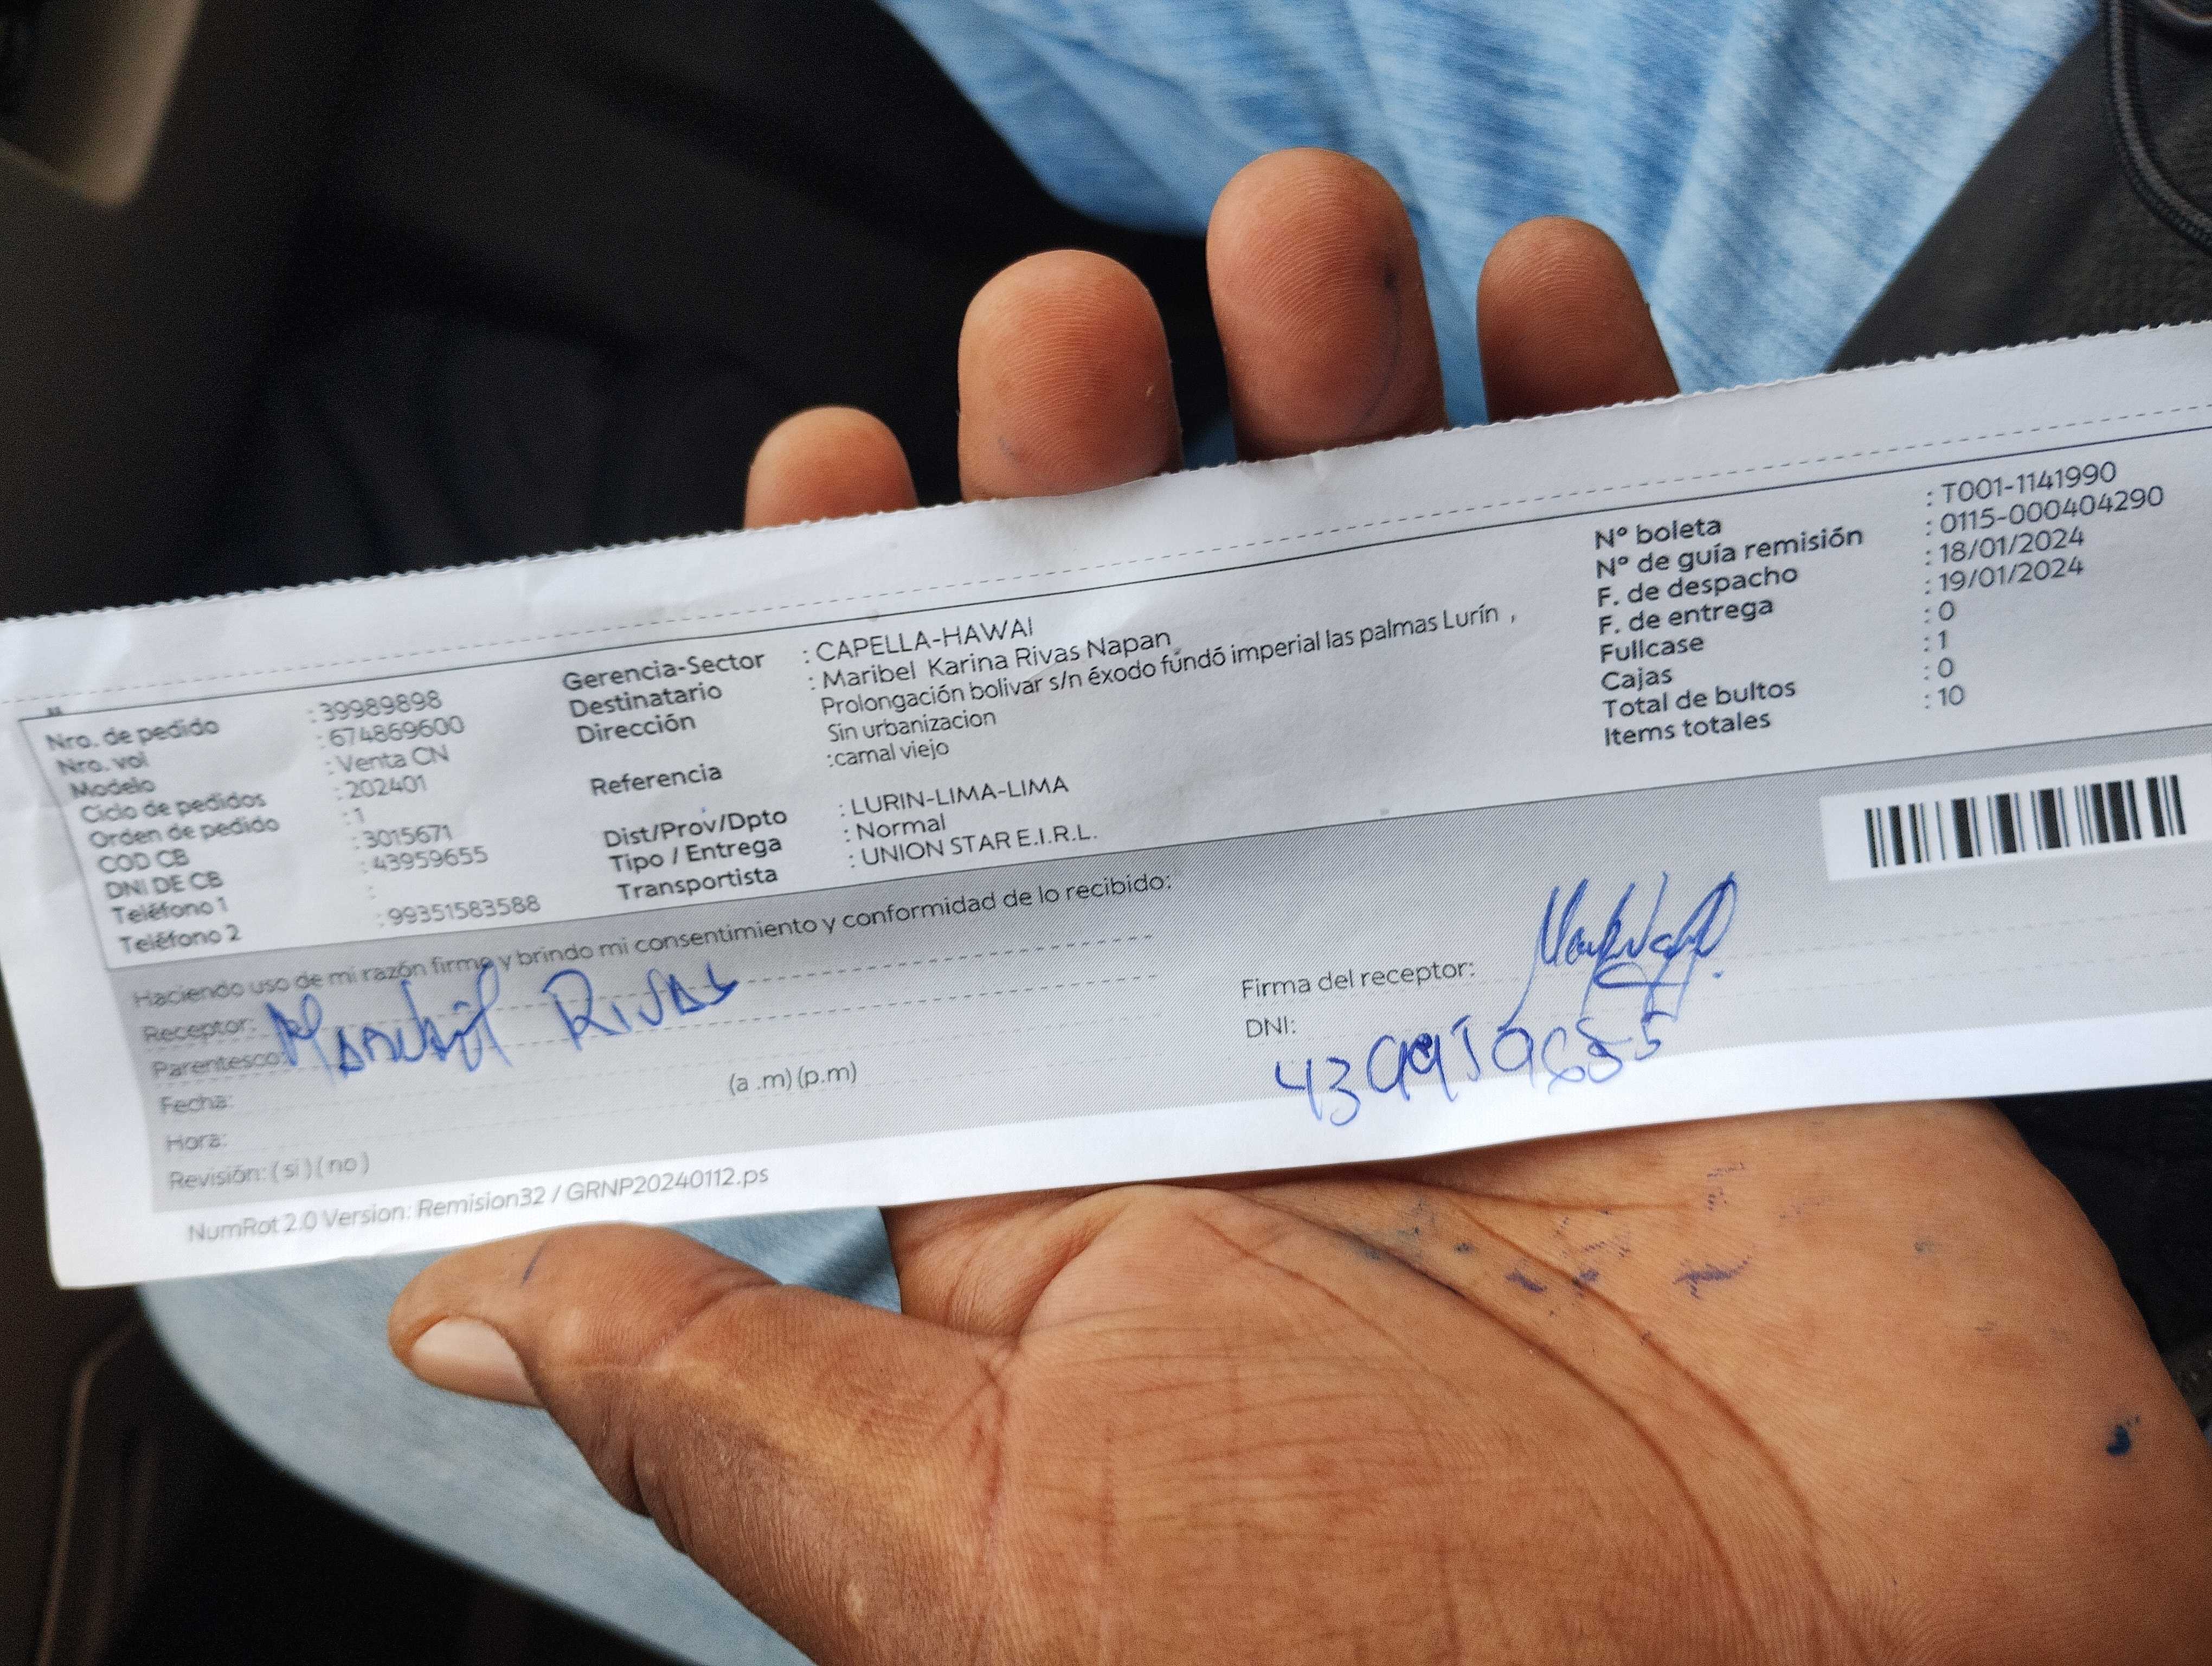 Nro. de pedido : 39989898
Nro. vol : 674869600
Modelo : Venta CN
Ciclo de pedidos : 202401
Orden de pedido : 1
COD CB : 3015671
DNI DE CB : 43959655
Teléfono 1 :
Teléfono 2 : 99351583588
Gerencia-Sector : CAPELLA-HAWAI
Destinatario : Maribel Karina Rivas Napan
Dirección Prolongación bolivar s/n éxodo fundó imperial las palmas Lurín ,
Sin urbanizacion
Referencia :camal viejo
Dist/Prov/Dpto : LURIN-LIMA-LIMA
Tipo / Entrega : Normal
Transportista : UNION STAR E.I.R.L.
Nº boleta : T001-1141990
Nº de guía remisión : 0115-000404290
F. de despacho : 18/01/2024
F. de entrega : 19/01/2024
Fullcase : 0
Cajas : 1
Total de bultos : 0
Items totales : 10
Haciendo uso de mi razón firmo y brindo mi consentimiento y conformidad de lo recibido:
Receptor: Rivas
Parentesco:
Fecha:
Hora: (a .m) (p.m)
Revisión: ( si ) ( no )
Firma del receptor:
DNI:
NumRot 2.0 Version: Remision32 / GRNP20240112.ps